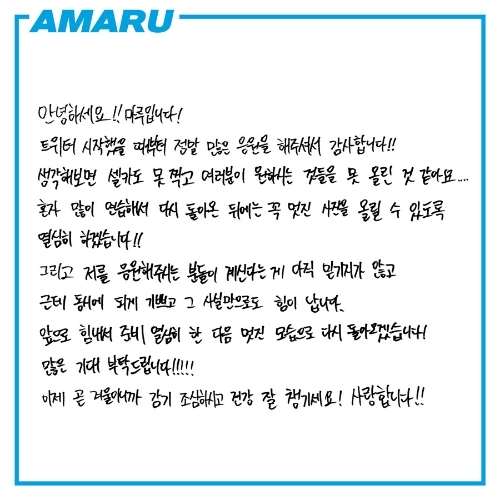 AMARU
안녕하세요!! 마루입니다!
트위터 시작했을 때부터 정말 많은 응원을 해주셔서 감사합니다!!
생각해보면 셀카도 못 찍고 여러분이 원하시는 것들을 못 올린 것 같아요....
혼자 많이 연습해서 다시 돌아온 뒤에는 꼭 멋진 사진을 올릴 수 있도록
열심히 하겠습니다!!
그리고 저를 응원해주시는 분들이 계신다는게 아직 믿기지가 않고
근데 동시에 되게 기쁘고 그 사실만으로도 힘이 납니다.
앞으로 힘내서 준비 열심히 한 다음 멋진 모습으로 다시 돌아오겠습니다!
많은 기대 부탁드립니다!!!!!
이제 곧 겨울이니까 감기 조심하시고 건강 잘 챙기세요! 사랑합니다!!